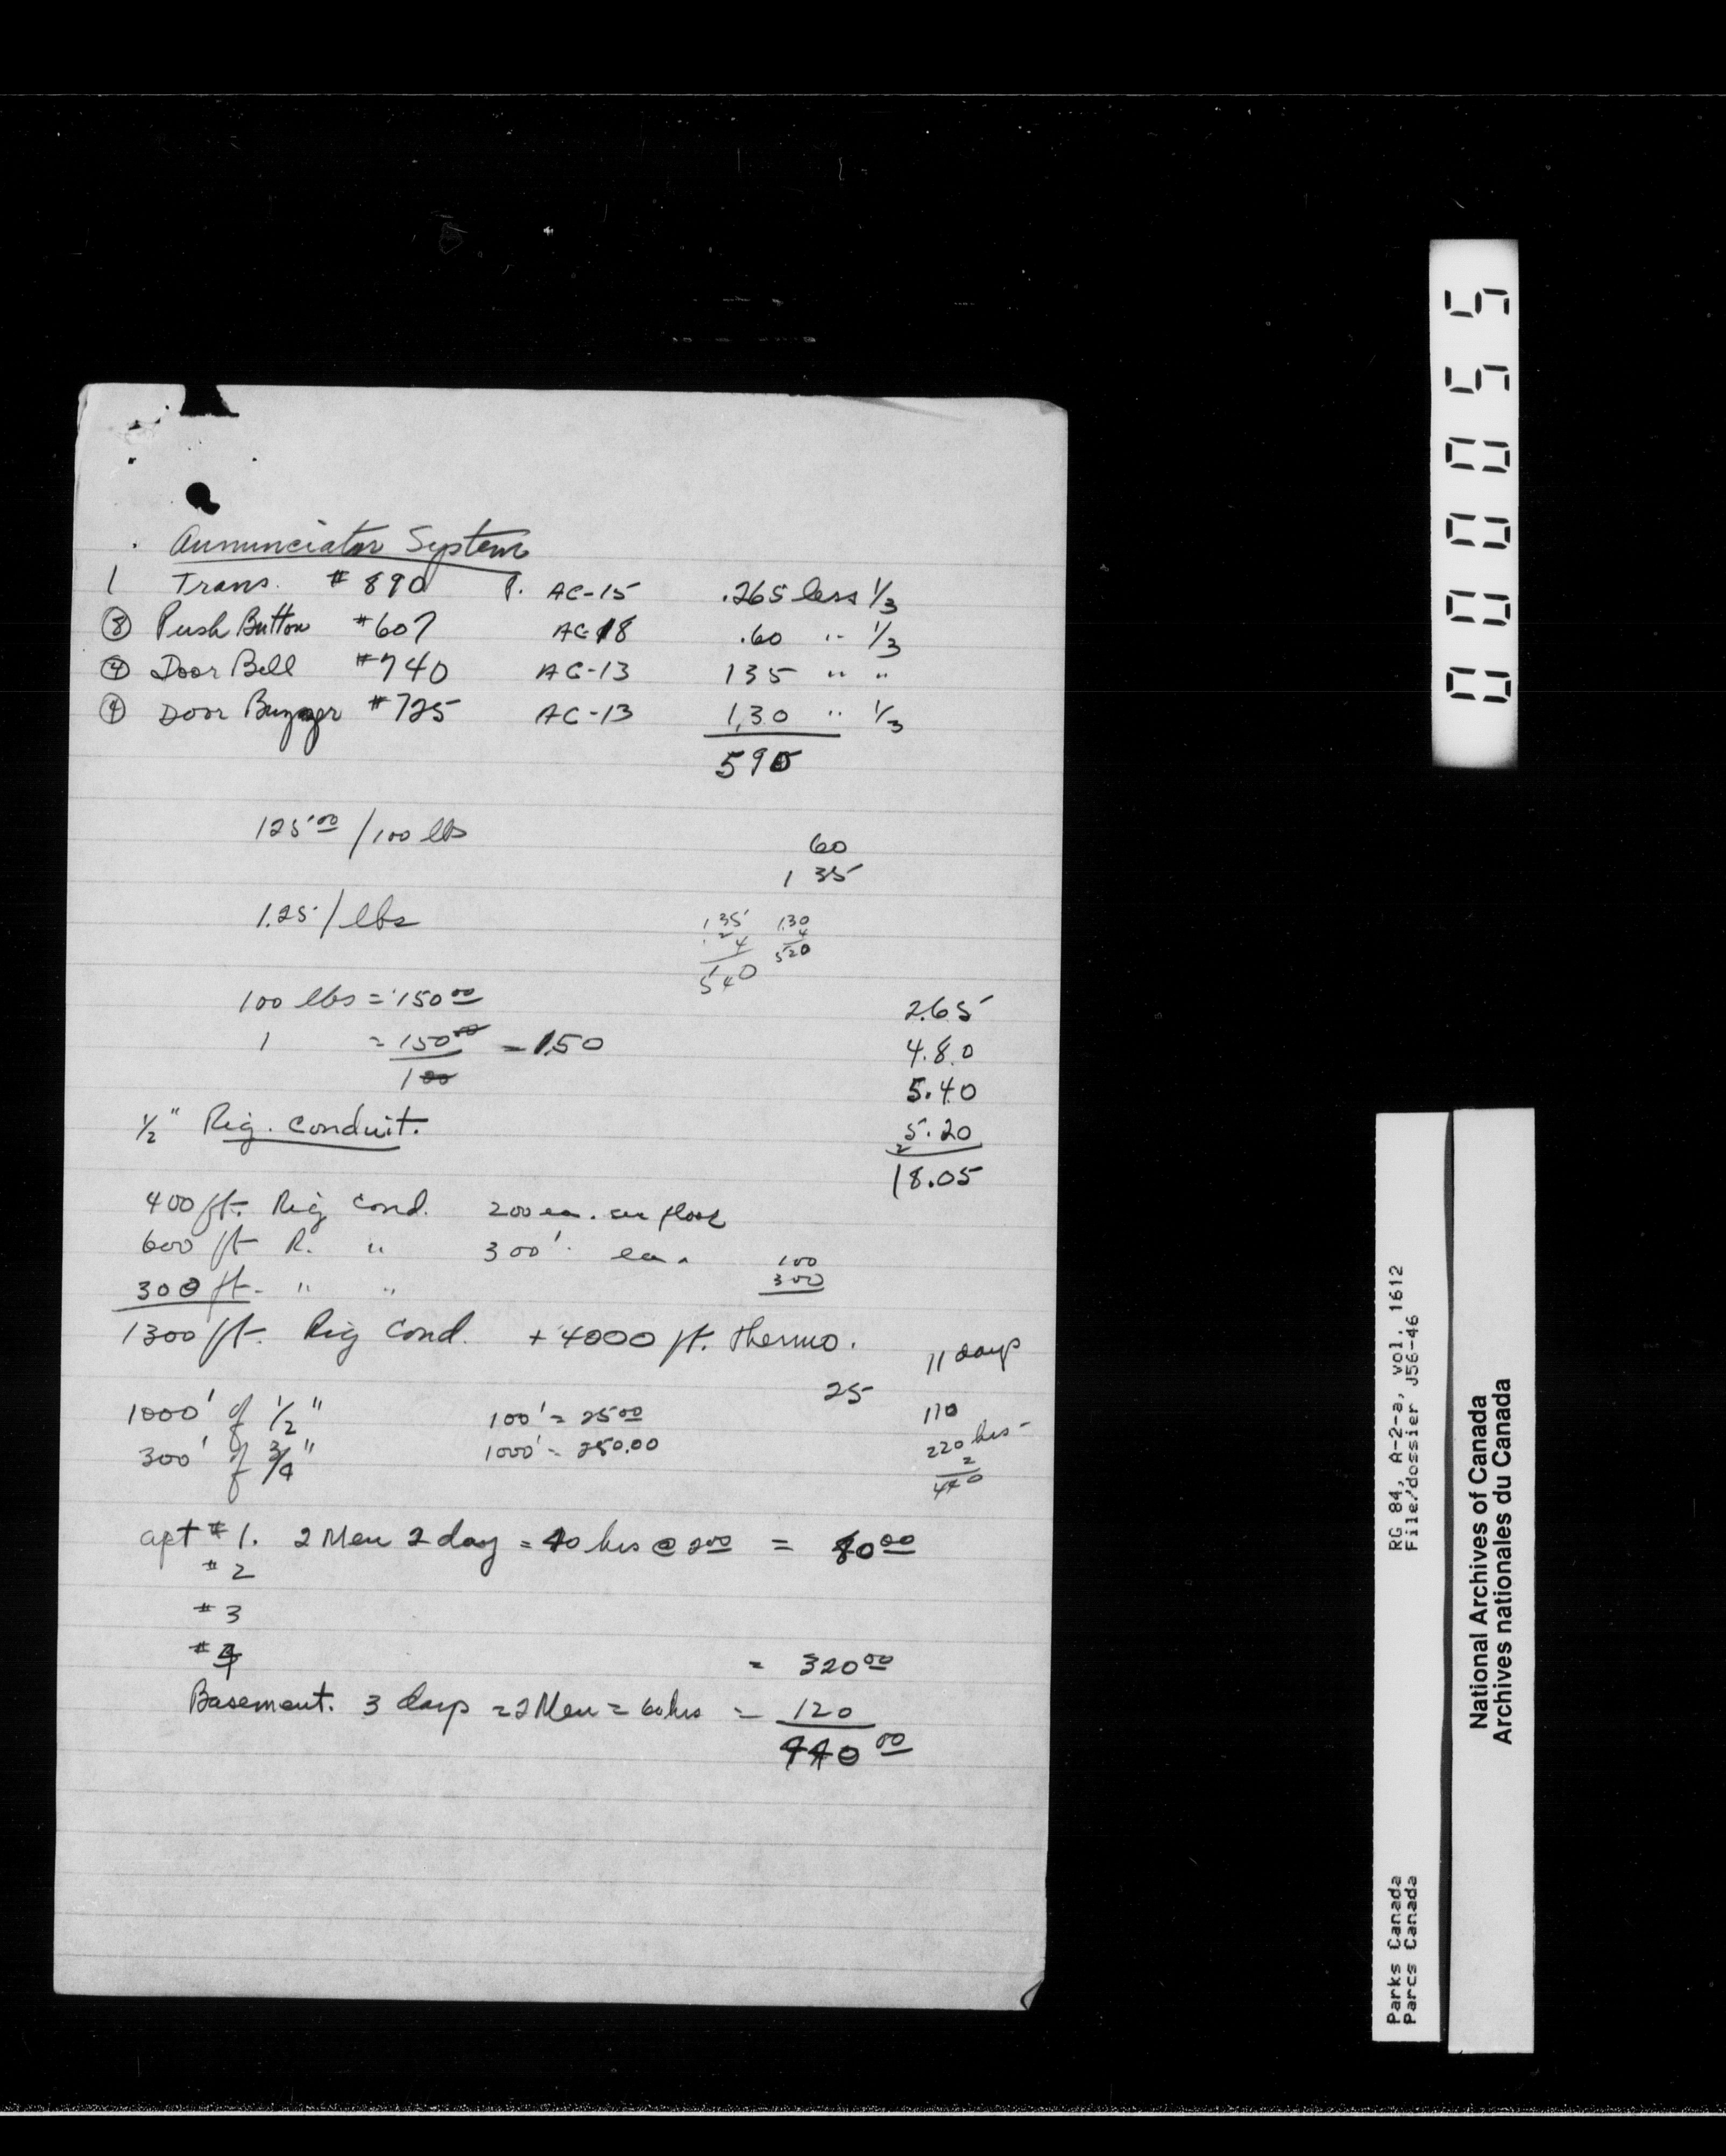 Annunciator System
1 Trans. # 890 P. AC-15 .265 less 1/3
8 Push Button #607 AC-18 .60 " 1/3
4 Door Bell #740 AC-13 135 " "
4 Door Buzzer #725 AC-13 1,30 " 1/3
590
125.00 /100 lbs
60
1 35
1.25 / lbs
1 35 1,30
4 4
540 520
100 lbs = 150 00
1 = 150 00 = 1.50
100
2.65
4.80
5.40
5.20
18.05
1/2" Rig. conduit.
400 ft. Rig Cond. 200 ea. floor
600 ft R. " 300' ea.
300 ft. " "
100
300
1300 ft. Rig Cond. + 4000 ft. thermo.
11 days
25
1000' of 1/2" 100' = 25 00
110
300' of 3/4" 1000' = 250.00
220 hrs
2
440
apt #1. 2 Men 2 day = 40 hrs @ 2 00 = 80 00
#2
#3
#4
= 320 00
Basement. 3 days = 2 Men = 60 hrs = 120
440 00
000055
RG 84, A-2-a, vol. 1612
File/dossier J56-46
Parks Canada
Parcs Canada
National Archives of Canada
Archives nationales du Canada